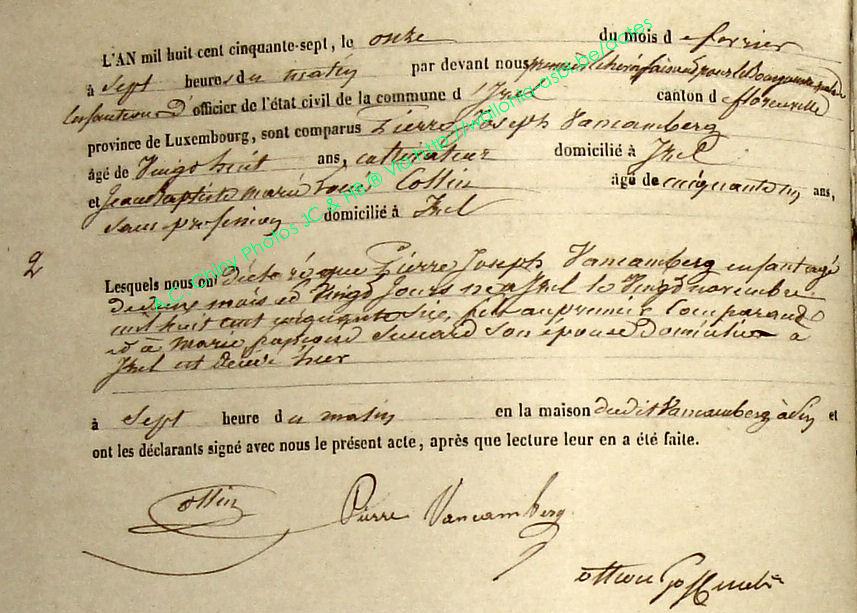 L'AN mil huit cent cinquante-sept, le onze du mois d e fevrier
à sept heures du matin par devant nous premier Echevin faisant pour le Bourgmestre
d'officier de l'état civil de la commune d 'Izel canton d e florenville
province de Luxembourg, sont comparus Pierre Joseph Vancamberg
âgé de Vingt huit ans, cultivateur domicilié à Izel
et Jean Baptiste marie Collin âgé de cinquante ans,
sans profession domicilié à Izel
2
Lesquels nous ont déclaré que Pierre Joseph Vancamberg enfant agé
de deux mois et Vingt Jours né a Izel le Vingt novembre
mil huit cent cinquante six, fils au premier Comparant
et à marie son épouse domiciliée à
Izel est décédé hier
à sept heure d u matin en la maison dudit Vancamberg à et
ont les déclarants signé avec nous le présent acte, après que lecture leur en a été faite.
Collin Pierre Vancamberg
A.C. Chiny Photos JC & HB® Via http://wallonia-asbl.be/dates